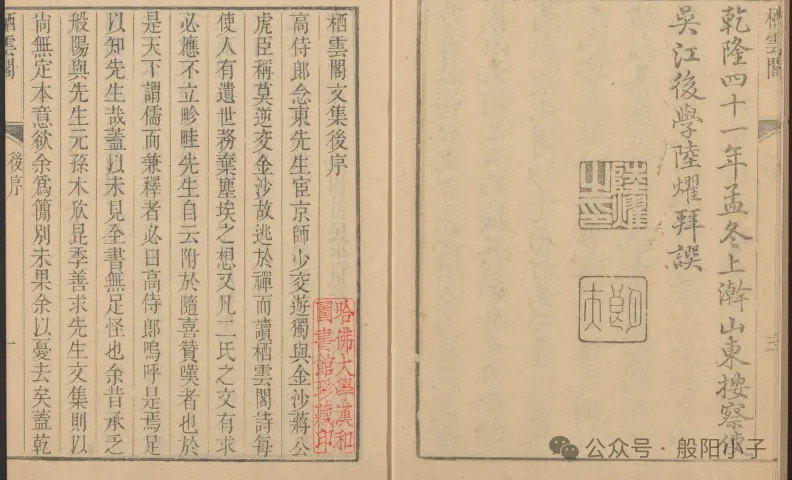 栖雲閣
三
乾隆四十一年孟冬上澣山東按察使
吳江後學陸燿拜譔
陸燿
之印
朗夫
栖雲閣文集後序
高侍郎念東先生宦京師少交遊獨與金沙蔣公
虎臣稱莫逆交金沙故逃於禪而讀栖雲閣詩每
使人有遺世務棄塵埃之想又凡二氏之文有求
必應不立畛畦先生自云附於隨喜贊嘆者也於
是天下謂儒而兼釋者必曰高侍郎嗚呼是焉足
以知先生哉蓋以未見全書無足怪也余昔承乏
般陽與先生元孫木欣昆季善求先生文集則以
尚無定本意欲余爲簡別未果余以憂去矣蓋乾
栖雲閣
後序
一
哈佛大學漢和
圖書館珍藏印
公众号·般阳小子